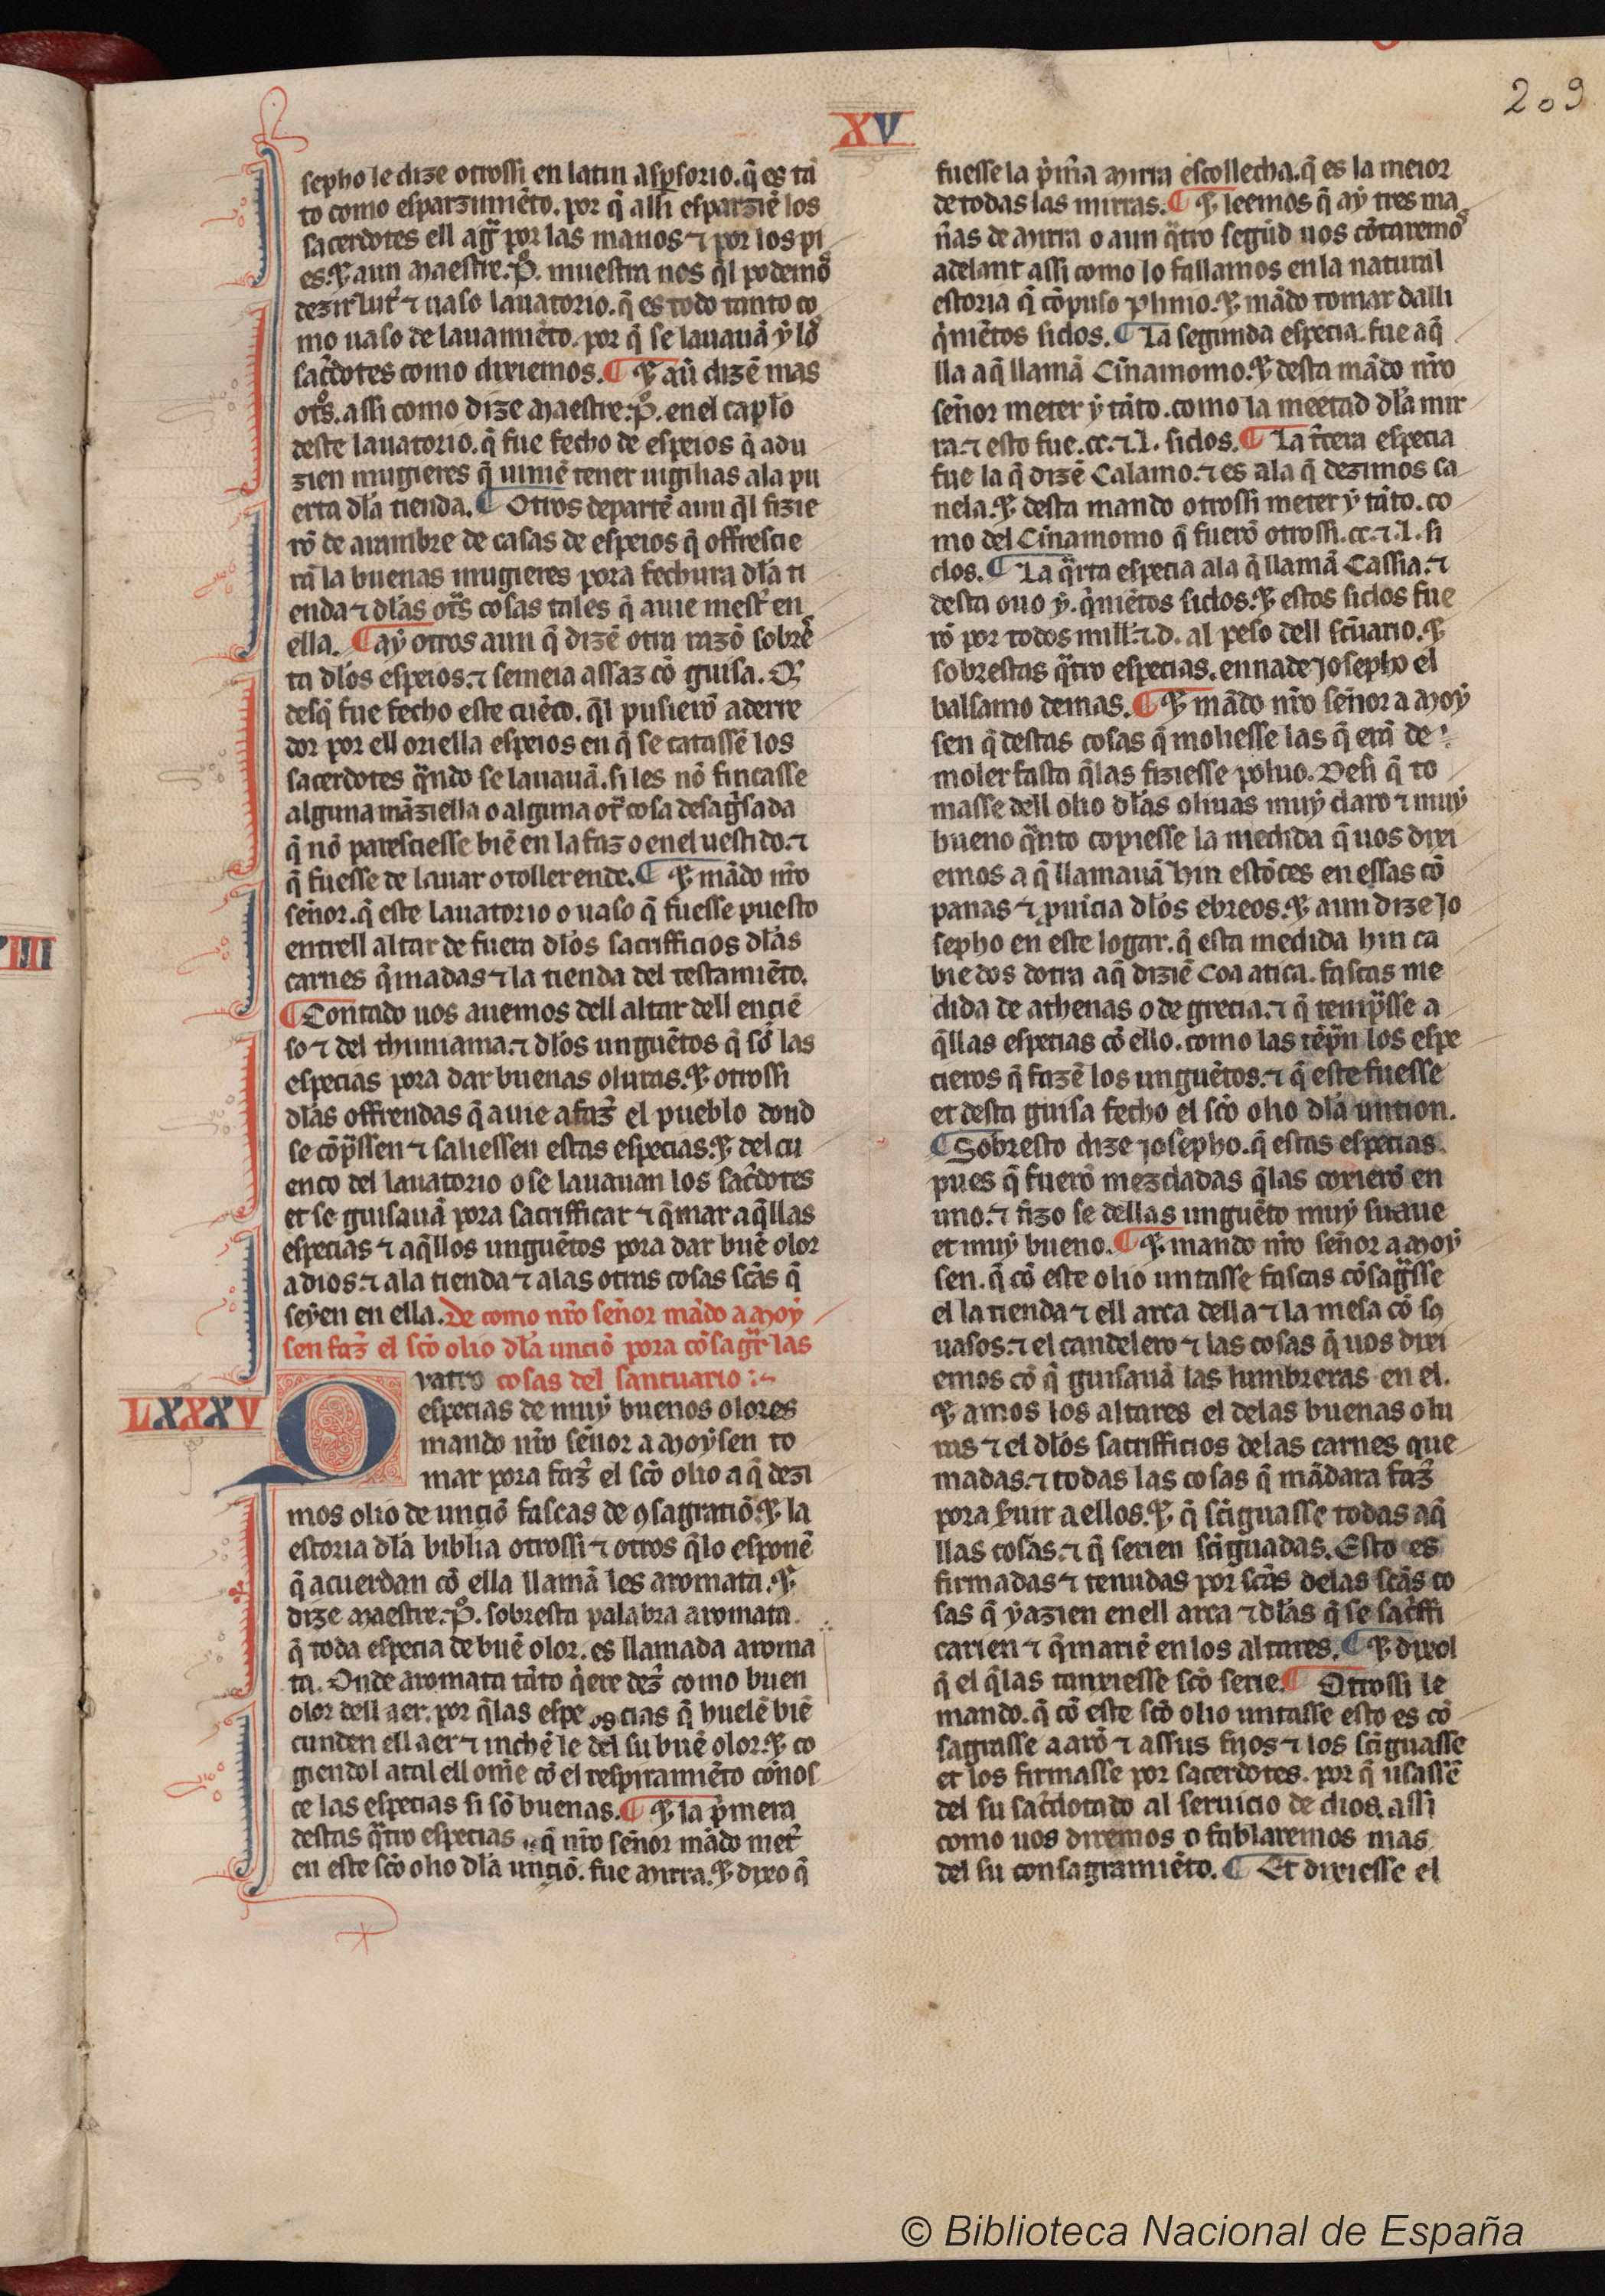 209
XV
sepho le dize otrossi en latin aspsorio. q̃ es tã
to como esparzimiẽto. por q̃ alli esparziẽ los
sacerdotes ell agͣ por las manos ⁊ por los pi
es. ⁊ aun maestre. P̊. muestra nos q̃l podemos
dezir lutͬ ⁊ uaso lauatorio. q̃ es todo tanto co
mo uaso de lauamiẽto. por q̃ se lauauã ỹ los
sac̃dotes como dixiemos. ¶ ⁊ aũ dizẽ mas
otͦs. assi como dize maestre. P̊. en el capl̃o
deste lauatorio. q̃ fue fecho de espeios q̃ adu
zien mugieres q̃ uiniẽ tener uigilias ala pu
erta dl̃a tienda. ¶ Otros departẽ aun q̃l fizie
rõ de arambre de casas de espeios q̃ offrescie
rã la buenas mugieres pora fechura dl̃a ti
enda ⁊ dl̃as otͣs cosas tales q̃ auie mest̃ en
ella. ¶ aỹ otros aun q̃ dizẽ otra razõ sobre
ta dl̃os espeios. ⁊ semeia assaz cõ guisa. Q̃
desq̃ fue fecho este cuẽco. q̃l pusierõ aderre
dor por ell oriella espeios en q̃ se catassẽ los
sacerdotes qͣndo se lauauã. si les nõ fincasse
alguna mãziella o alguna otͬ cosa desagͣsada
q̃ nõ paresciesse biẽ en la faz o en el uestido. ⁊
q̃ fuesse de lauar o toller ende. ¶ ⁊ mãdo nr̃o
señor. q̃ este lauatorio o uaso q̃ fuesse puesto
entrell altar de fuera dl̃os sacrifficios dl̃as
carnes q̃madas ⁊ la tienda del testamiẽto.
¶ Contado uos auemos dell altar dell enciẽ
so ⁊ del thimiama. ⁊ dl̃os unguẽtos q̃ sõ las
especias pora dar buenas oluras. ⁊ otrossi
dl̃as offrendas q̃ auie a faz̃ el pueblo dond
se cõpͣssen ⁊ saliessen estas especias. ⁊ del cu
enco del lauatorio o se lauauan los sac̃dotes
et se guisauã pora sacrifficar ⁊ q̃mar aq̃llas
especias ⁊ aq̃llos unguẽtos pora dar buẽ olor
a dios. ⁊ ala tienda ⁊ alas otras cosas sc̃as q̃
seyen en ella. De como nr̃o señor mãdo a moy
sen faz̃ el sc̃o olio dl̃a unciõ pora cõsagͬr las
LXXXV
Quatro cosas del santuario :~
especias de muy buenos olores
mando nr̃o señor a moysen to
mar pora faz̃ el sc̃o olio a q̃ dezi
mos olio de unciõ fascas de ꝯsagratiõ. ⁊ la
estoria dl̃a biblia otrossi ⁊ otros q̃lo esponẽ
q̃ acuerdan cõ ella llamã les aromata. ⁊
dize maestre. P̊. sobresta palabra aromata.
q̃ toda especia de buẽ olor. es llamada aroma
ta. Onde aromata tãto q̃ere dez̃ como buen
olor dell aer. por q̃las espe cias q̃ huelẽ biẽ
cunden ell aer ⁊ inchẽ le del su buẽ olor. ⁊ co
giendol atal ell om̃e cõ el respiramiẽto cõnos
ce las especias si sõ buenas. ¶ ⁊ la p̃mera
destas qͣtro especias q̃ nr̃o señor mãdo met̃
en este sc̃o olio dl̃a unciõ. fue mirra. ⁊ dixo q̃
fuesse la p̃m̃a mirra escollecha. q̃ es la meior
de todas las mirras. ¶ ⁊ leemos q̃ aỹ tres ma
ñas de mirra o aun qͣtro segũd uos cõtaremos
adelant assi como lo fallamos en la natural
estoria q̃ cõpuso plinio. ⁊ mãdo tomar dalli
q̃niẽtos siclos. ¶ La segunda especia. fue aq̃
lla aq̃ llamã Cinamomo. ⁊ desta mãdo nr̃o
señor meter ỹ tãto. como la meetad dl̃a mir
ra. ⁊ esto fue. cc. ⁊. l. siclos. ¶ La t̃cera especia
fue la q̃ dizẽ Calamo. ⁊ es ala q̃ dezimos ca
nela. ⁊ desta mando otrossi meter ỹ tãto. co
mo del Cinamomo q̃ fuerõ otrossi. cc. ⁊. l. si
clos. ¶ La qͣrta especia ala q̃ llamã Cassia. ⁊
desta ouo ỹ. q̃niẽtos siclos. ⁊ estos siclos fue
rõ por todos mill. ⁊. d. al peso dell sc̃uario. ⁊
sobrestas qͣtro especias. ennade josepho el
balsamo demas. ¶ ⁊ mãdo nr̃o señor a moy
sen q̃ destas cosas q̃ moliesse las q̃ erã de
moler fasta q̃las fiziesse poluo. Desi q̃ to
masse dell olio dl̃as oliuas muy claro ⁊ muy
bueno qͣnto copiesse la medida q̃ uos dixi
emos a q̃ llamauã hin estõces en essas cõ
panas ⁊ puicia dl̃os ebreos. ⁊ aun dize jo
sepho en este logar. q̃ esta medida hin ca
bie dos dotra aq̃ diziẽ Coa atica. fascas me
dida de athenas o de grecia. ⁊ q̃ tempͣsse a
q̃llas especias cõ ello. como las tẽpͣn los espe
cieros q̃ fazẽ los unguẽtos. ⁊ q̃ este fuesse
et desta guisa fecho el sc̃o olio dl̃a untion.
¶ Sobresto dize josepho. q̃ estas especias.
pues q̃ fuerõ mezcladas q̃las coxierõ en
uno. ⁊ fizo se dellas unguẽto muy suaue
et muy bueno. ¶ ⁊ mando nr̃o señor a moy
sen. q̃ cõ este olio untasse fascas cõsagͣsse
el la tienda ⁊ ell arca della ⁊ la mesa cõ sꝯ
uasos. ⁊ el candelero ⁊ las cosas q̃ uos dixi
emos cõ q̃ guisauã las lumbreras en el.
⁊ amos los altares el delas buenas olu
ras ⁊ el dl̃os sacrifficios delas carnes que
madas. ⁊ todas las cosas q̃ mãdara faz̃
pora s̃uir a ellos. ⁊ q̃ sc̃iguasse todas aq̃
llas cosas. ⁊ q̃ serien sc̃iguadas. Esto es
firmadas ⁊ tenudas por sc̃as delas sc̃as co
sas q̃ yazien en ell arca ⁊ dl̃as q̃ se sac̃ffi
carien ⁊ q̃mariẽ en los altares. ¶ ⁊ dixol
q̃ el q̃las tanxiesse sc̃o serie. ¶ Otrossi le
mando. q̃ cõ este sc̃o olio untasse esto es cõ
sagrasse a arõ ⁊ assus fijos ⁊ los sc̃iguasse
et los firmasse por sacerdotes. por q̃ usassẽ
del su sac̃dotado al seruicio de dios. assi
como uos diremos o fablaremos mas
del su consagramiẽto. ¶ Et dixiesse el
© Biblioteca Nacional de España